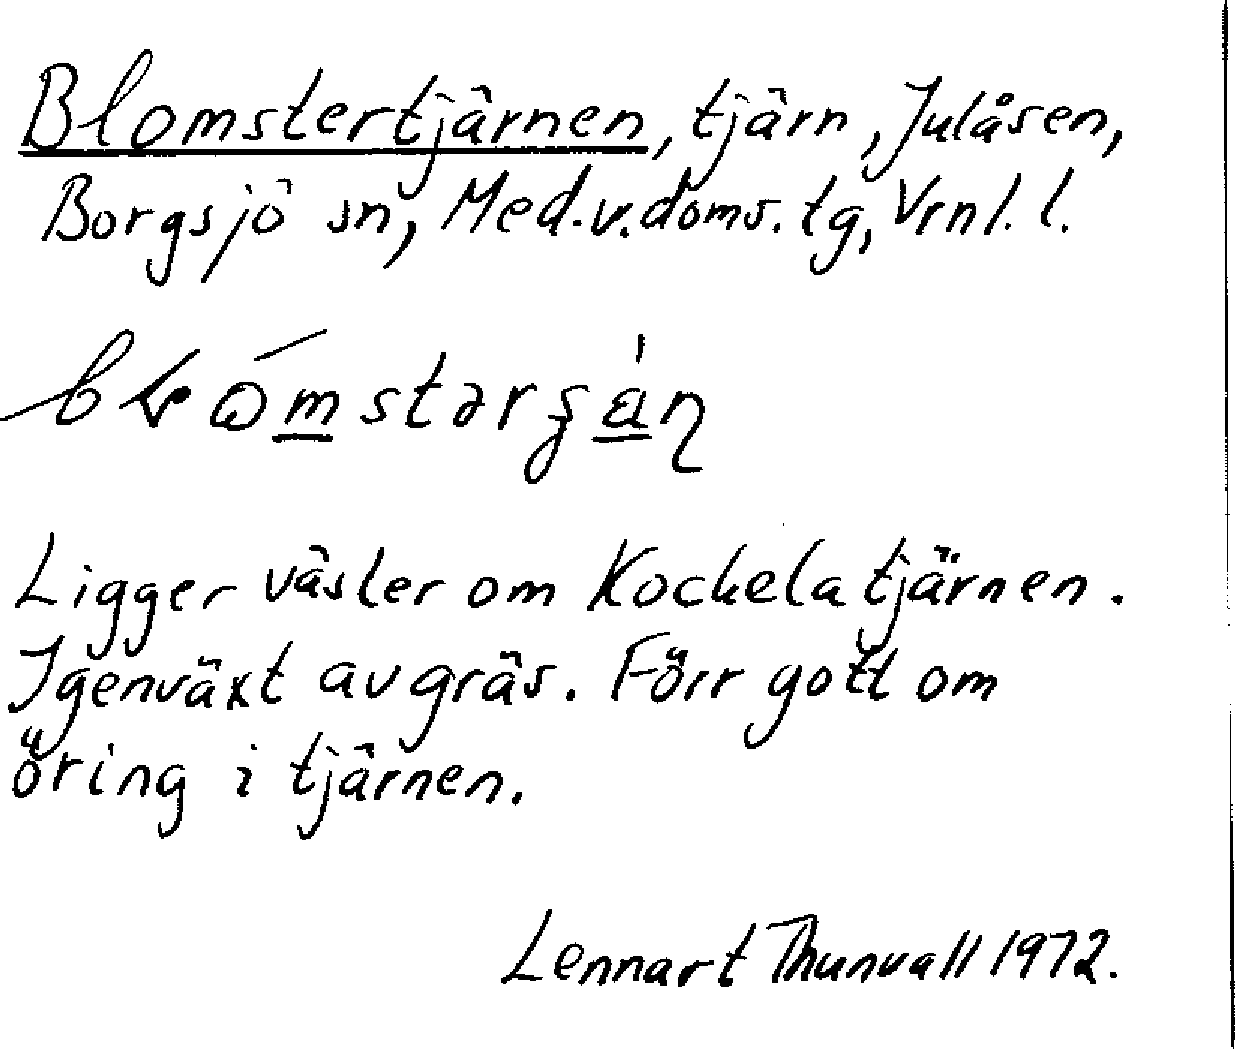 Blomstertjärnen, tjärn, Julåsen,
Borgsjö sn, Med.v.doms.tg, Vrnl. l.
Ligger väster om Kockelatjärnen.
Igenväxt av gräs. Förr gott om
öring i tjärnen.
Lennart Thunvall 1972.